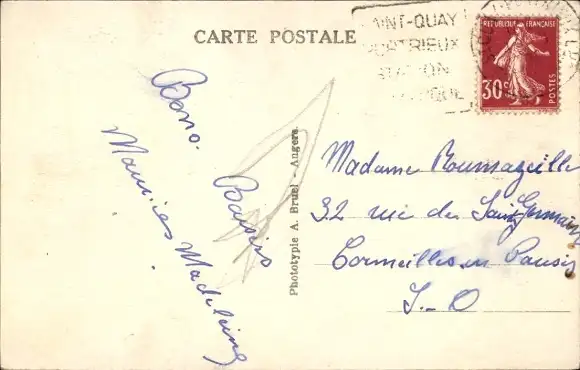 CARTE POSTALE
SAINT-QUAY
PORTRIEUX
STATION
REPUBLIQUE FRANÇAISE
30c
POSTES
Bons
Baisers
Madeleine
Phototypie A. Bruel - Angers
Madame
32 rue de Saint Germain
Cormeilles en Parisis
S.-O